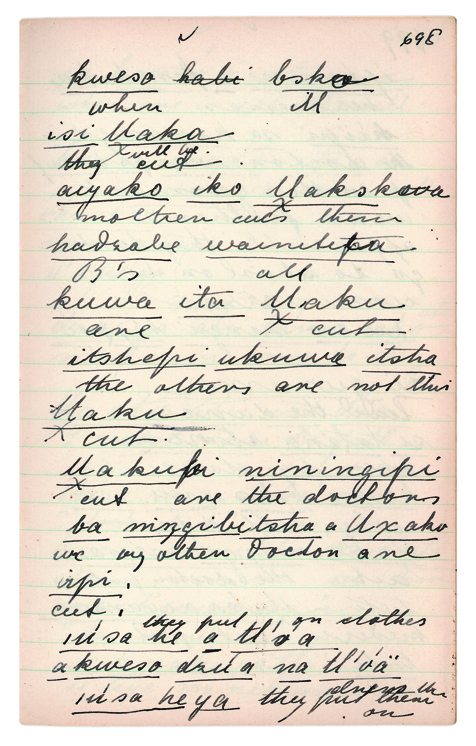 698
kweso habi bska
when ill
isi Uaka
they will be cut
aiyako iko Uakskawa
mother cuts them
hadzabe wainitefa
B's all
kuwa ita Uaku
are x cut
itshepi ukuwa itsha
the others are not this
Uaku
x cut.
Uakupi niningipi
x cut are the doctors
ba mzgibitsha a Uxako
we any other doctor are
ipi.
cut.
they put on clothes
insa he a tl'oa
akweso dzu'a na tl'oä
insa heya they put them
on